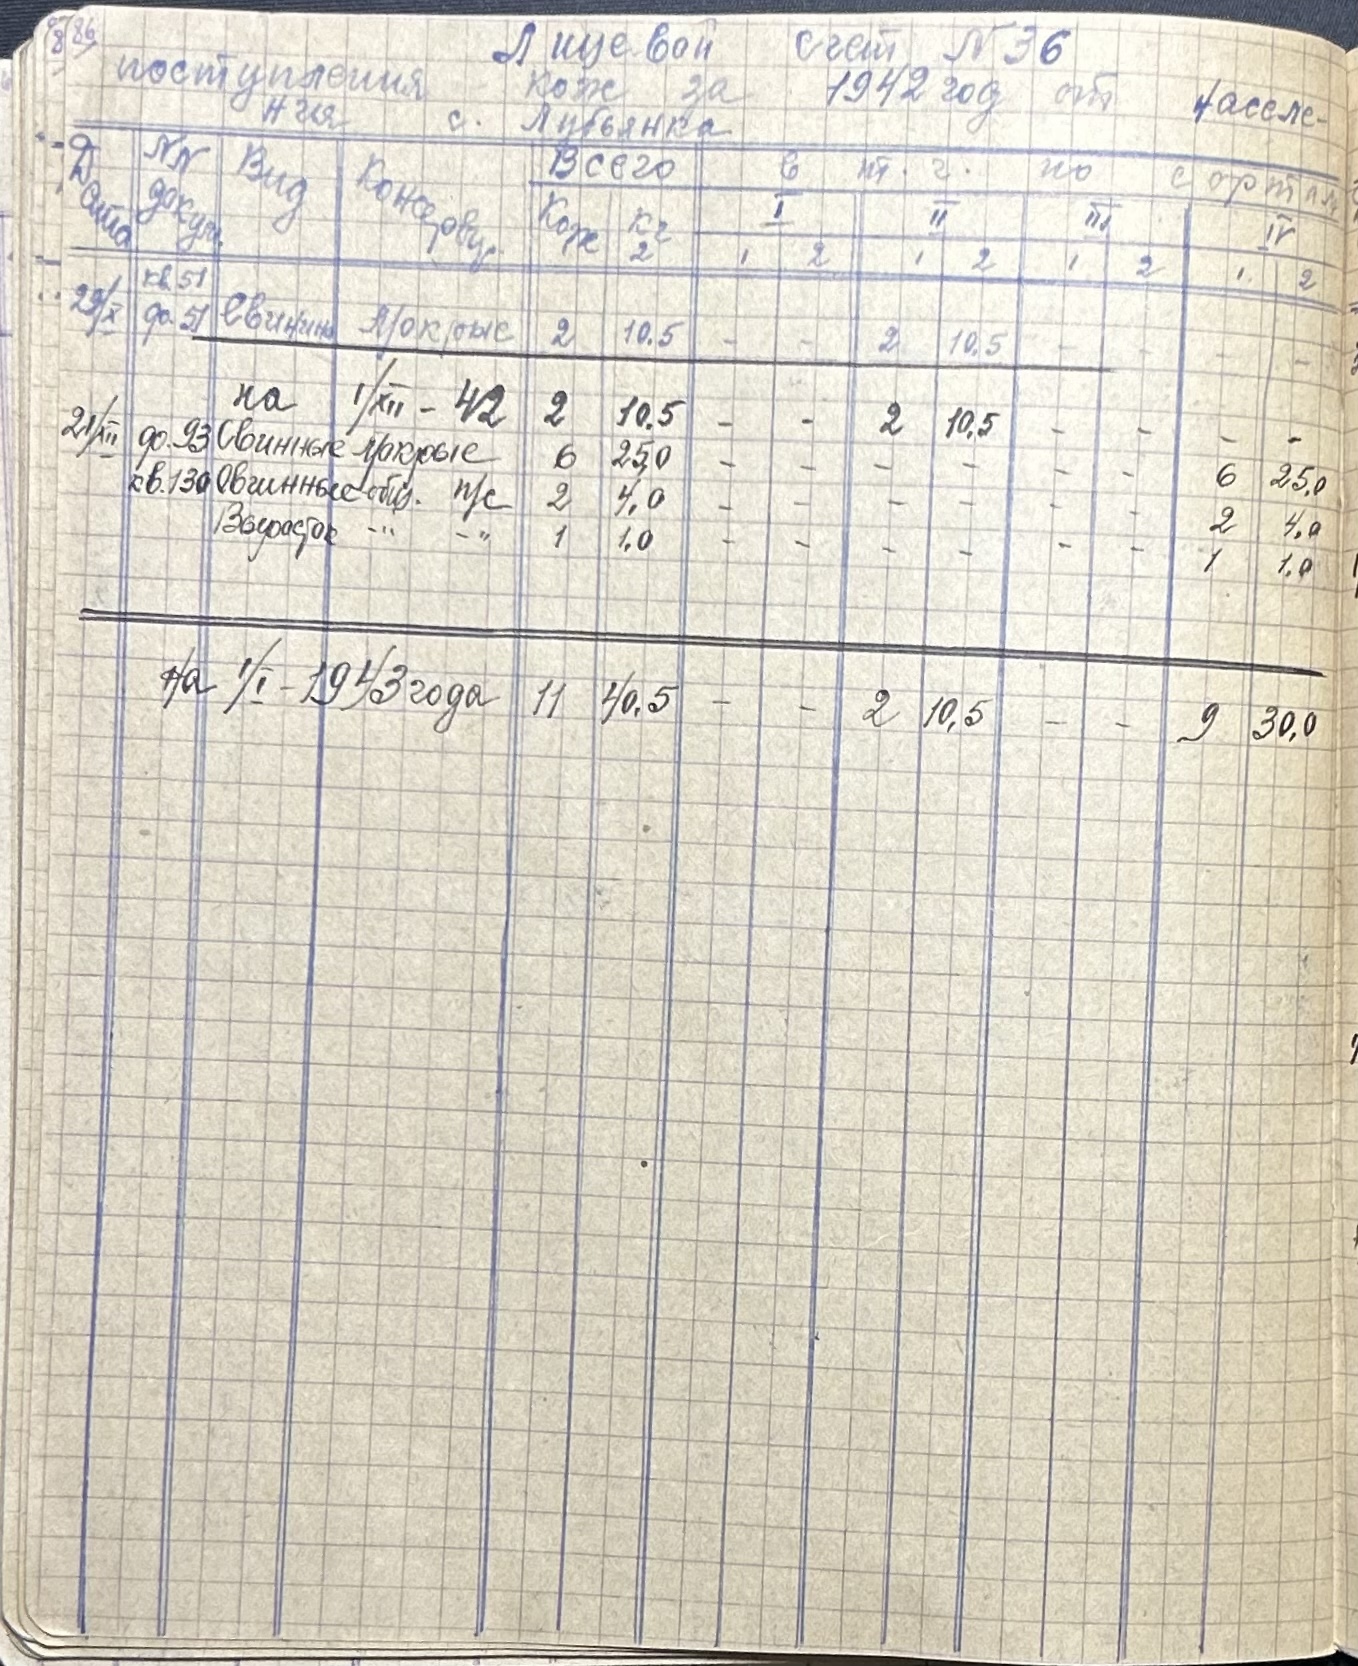 86
Лицевой счет N 36
поступления кож за 1942 год от населе-
ния с. Лубянка
Дата NN докум. Вид Консервир. Всего в т. ч. по сортам
Кож кг I II III IV
2 1 2 1 2 1 2 1. 2
кв. 51
29/X до. 51 Свинина Мокрые 2 10.5 - - 2 10.5 - - - -
на 1/XII - 42 2 10.5 - - 2 10.5 - - - -
21/XII до. 93 Свинные Мокрые 6 25,0 - - - - - - 6 25,0
кв. 130 Овчинные обы. п/с 2 4,0 - - - - - - 2 4,0
Выросток -"- -"- 1 1,0 - - - - - - 1 1,0
На 1/I - 1943 года 11 40,5 - - 2 10,5 - - 9 30,0